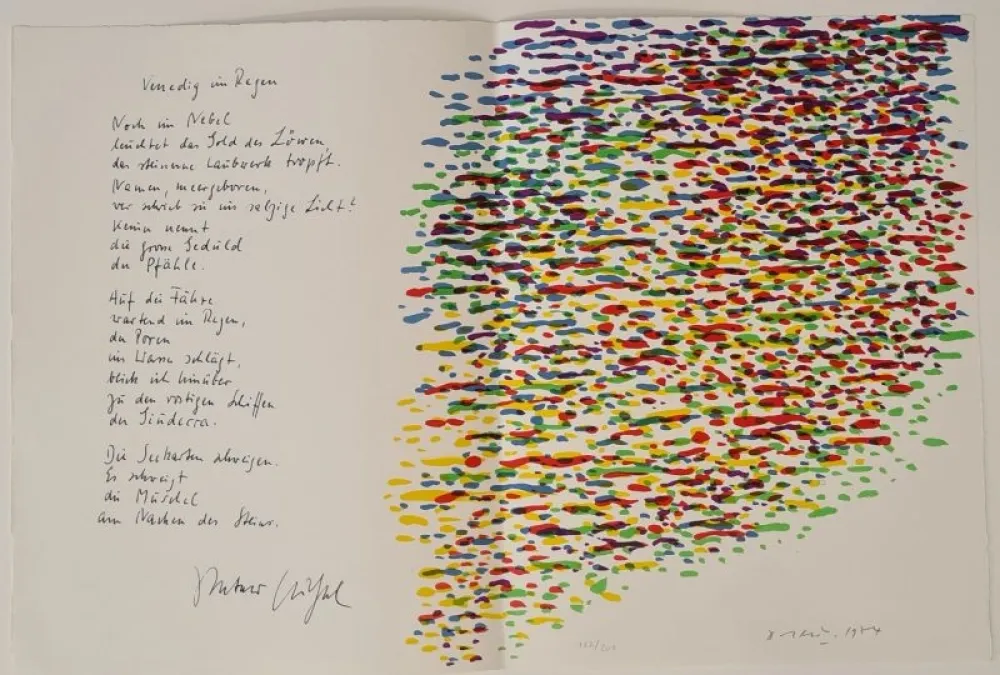 Venedig im Regen
Noch im Nebel
leuchtet das Gold des Löwen,
das steinerne Laubwerk tropft.
Namen, meergeboren,
wer schrieb sie ins salzige Licht?
Keiner nennt
die grosse Geduld
der Pfähle.
Auf die Fähre
wartend im Regen,
der Poren
ins Wasser schlägt,
blick ich hinüber
zu den rostigen Schiffen
der Giudecca.
Die Seekarten schweigen.
Es schweigt
die Muschel
am Nacken des Steins.
1974